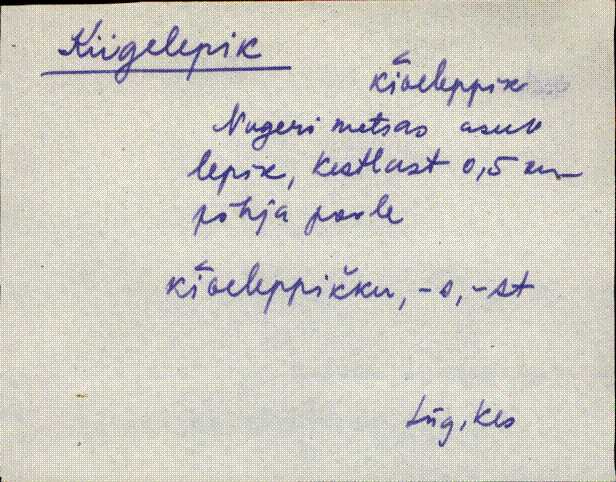 Kiigelepik
kíveleppik
Nugeri metsas asuv
lepik, Kestlast 0,5 km
põhja poole
kíveleppikku, -s, -st
Lüg, Kes